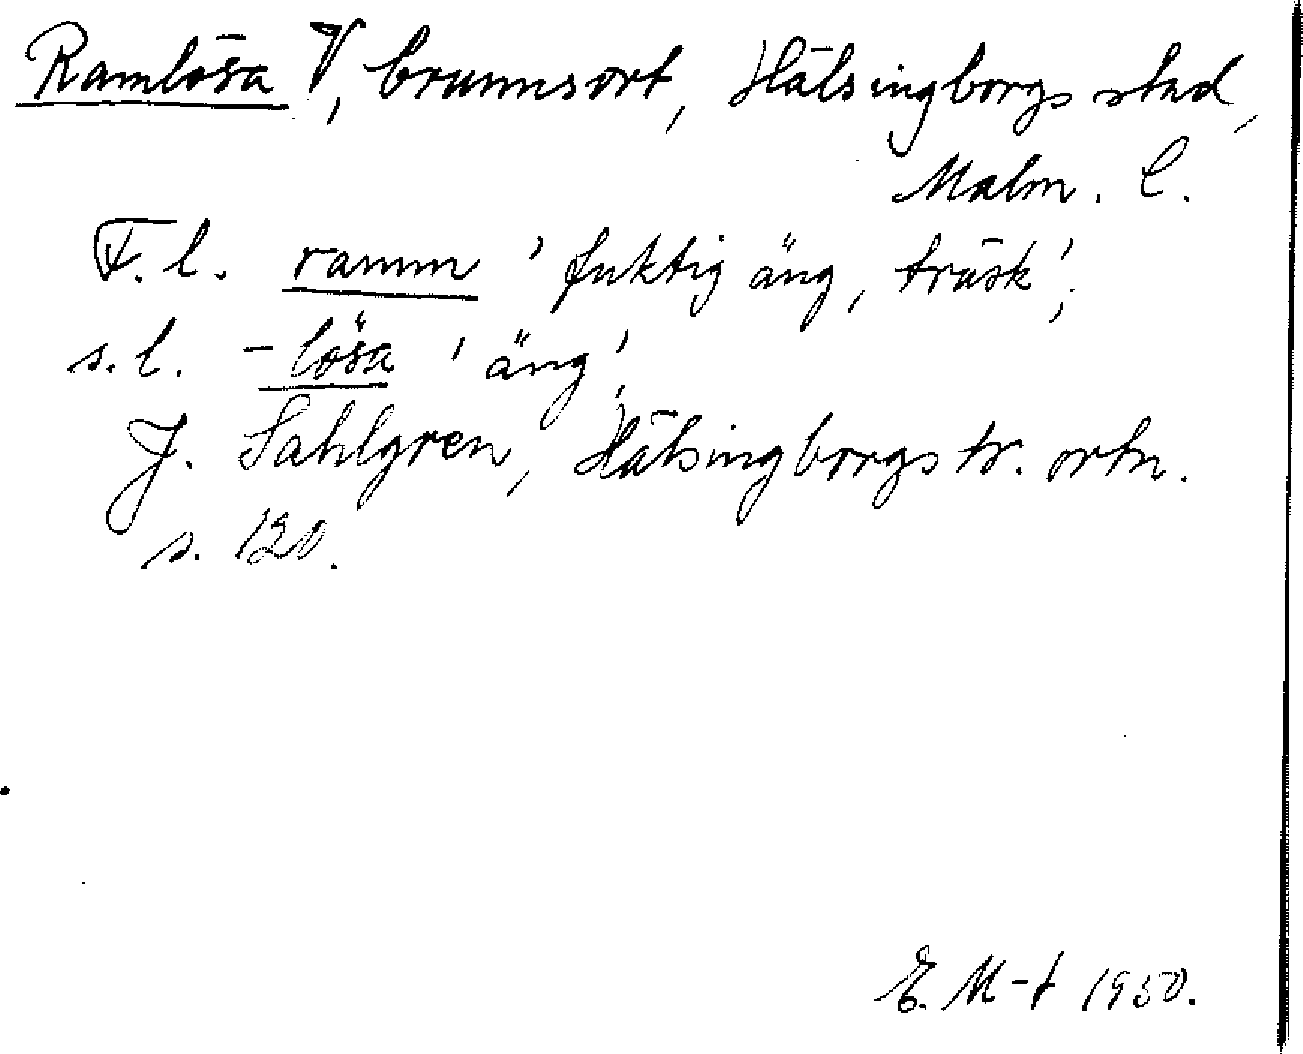 Ramlösa V, brunnsort, Hälsingborgs stad,
Malm. l.
F.l. ramm 'fuktig äng, träsk';
s.l. -lösa 'äng',
J. Sahlgren, Hälsingborgstr. ortn.
s. 120.
E. M-t 1950.